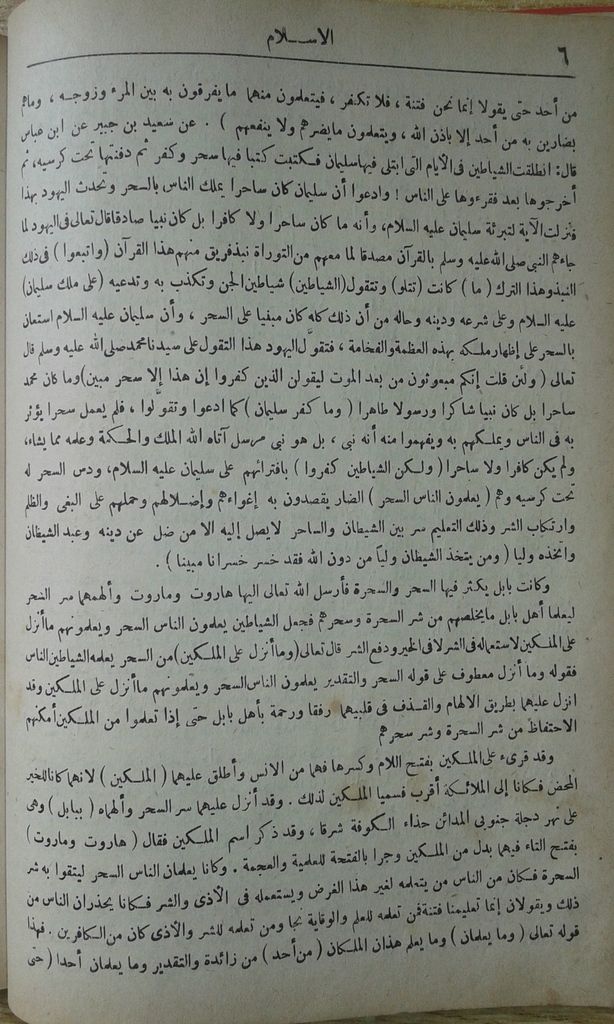 ٦
الاسلام
من أحد حتى يقولا إنما نحن فتنة ، فلا تكفر ، فيتعلمون منهما ما يفرقون به بين المرء وزوجه ، وماهم
بضارين به من أحد إلا باذن الله ، ويتعلمون مايضرهم ولا ينفعهم ) . عن سعيد بن جبير عن ابن عباس
قال: انطلقت الشياطين فى الأيام التى ابتلى فيها سليمان فكتبت كتبا فيها سحر وكفر ثم دفنتها تحت كرسيه، ثم
أخرجوها بعد فقرءوها على الناس ! وادعوا أن سليمان كان ساحرا يملك الناس بالسحر وتحدث اليهود بهذا
فنزلت الآية لتبرئة سليمان عليه السلام، وأنه ما كان ساحرا ولا كافرا بل كان نبيا صادقا قال تعالى فى اليهود لما
جاءهم النبى صلى الله عليه وسلم بالقرآن مصدقا لما معهم من التوراة نبذ فريق منهم هذا القرآن (واتبعوا ) فى ذلك
النبذ وهذا الترك ( ما ) كانت (تتلو) وتتقول (الشياطين) شياطين الجن وتكذب به وتدعيه (على ملك سليمان)
عليه السلام وعلى شرعه ودينه وحاله من أن ذلك كله كان مبنيا على السحر ، وأن سليمان عليه السلام استعان
بالسحر على إظهار ملكه بهذه العظمة والفخامة ، فتقول اليهود هذا التقول على سيدنا محمد صلى الله عليه وسلم قال
تعالى ( ولئن قلت إنكم مبعوثون من بعد الموت ليقولن الذين كفروا إن هذا إلا سحر مبين) وما كان محمد
ساحرا بل كان نبيا شاكرا ورسولا طاهرا ( وما كفر سليمان ) كما ادعوا وتقولوا ، فلم يعمل سحرا يؤثر
به فى الناس ويملكهم به ويفهموا منه أنه نبى ، بل هو نبى مرسل آتاه الله الملك والحكمة وعلمه مما يشاء،
ولم يكن كافرا ولا ساحرا ( ولكن الشياطين كفروا ) بافترائهم على سليمان عليه السلام، ودس السحر له
تحت كرسيه وهم ( يعلمون الناس السحر ) الضار يقصدون به إغواءهم وإضلالهم وحملهم على البغى والظلم
وارتكاب الشر وذلك التعليم سر بين الشيطان والساحر لايصل إليه الا من ضل عن دينه وعبد الشيطان
واتخذه وليا ( ومن يتخذ الشيطان وليا من دون الله فقد خسر خسرانا مبينا ) .
وكانت بابل يكثر فيها السحر والسحرة فأرسل الله تعالى اليها هاروت وماروت وألهمهما سر السحر
ليعلما أهل بابل مايخلصهم من شر السحرة وسحرهم فجعل الشياطين يعلمون الناس السحر ويعلمونهم ماأنزل
على الملكين لاستعماله فى الشر لا فى الخير ودفع الشر قال تعالى (وما أنزل على الملكين) من السحر يعلمه الشياطين الناس
فقوله وما أنزل معطوف على قوله السحر والتقدير يعلمون الناس السحر ويعلمونهم ماأنزل على الملكين وقد
انزل عليهما بطريق الالهام والقذف فى قلبيهما رفقا ورحمة بأهل بابل حتى إذا تعلموا من الملكين أمكنهم
الاحتفاظ من شر السحرة وشر سحرهم
وقد قرىء على الملكين بفتح اللام وكسرها فهما من الانس وأطلق عليهما ( الملكين ) لانهما كانا للخير
المحض فكانا إلى الملائكة أقرب فسميا الملكين لذلك . وقد أنزل عليهما سر السحر وألهماه ( ببابل ) وهى
على نهر دجلة جنوبى المدائن حذاء الكوفة شرقا ، وقد ذكر اسم الملكين فقال ( هاروت وماروت )
بفتح التاء فيهما بدل من الملكين وجرا بالفتحة للعلمية والعجمة . وكانا يعلمان الناس السحر ليتقوا به شر
السحرة فكان من الناس من يتعلمه لغير هذا الغرض ويستعمله فى الأذى والشر فكانا يحذران الناس من
ذلك ويقولان إنما تعليمنا فتنة فمن تعلمه للعلم والوقاية نجا ومن تعلمه للشر والأذى كان من الكافرين . فهذا
قوله تعالى ( وما يعلمان ) وما يعلم هذان الملكان ( من أحد ) من زائدة والتقدير وما يعلمان أحدا ( حتى